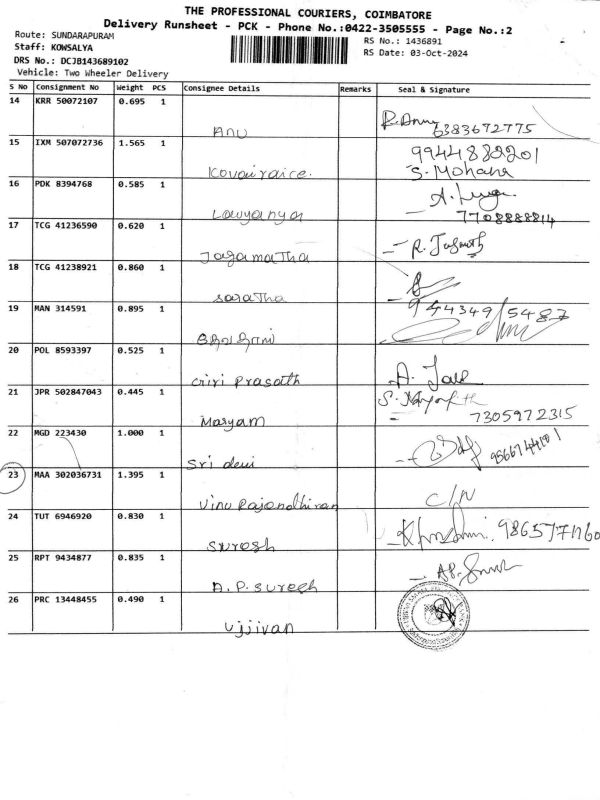 THE PROFESSIONAL COURIERS, COIMBATORE
Delivery Runsheet - PCK - Phone No.:0422-3505555 - Page No.:2
Route: SUNDARAPURAM
RS No.: 1436891
Staff: KOWSALYA
RS Date: 03-Oct-2024
DRS No.: DCJB143689102
Vehicle: Two Wheeler Delivery
S No Consignment No Weight PCS Consignee Details Remarks Seal & Signature
14 KRR 50072107 0.695 1
Anu 6383672775
15 IXM 507072736 1.565 1 9944882201
S. Mohana
16 PDK 8394768 0.585 1
Lavyanya 7708888814
17 TCG 41236590 0.620 1
Jagamatha
18 TCG 41238921 0.860 1
saratha
19 MAN 314591 0.895 1 944349 5487
20 POL 8593397 0.525 1
Giri Prasath
21 JPR 502847043 0.445 1
Maryam 7305972315
22 MGD 223430 1.000 1
Sri devi
23 MAA 302036731 1.395 1
Vinu Rajendhiran C/N
24 TUT 6946920 0.830 1
Suresh
25 RPT 9434877 0.835 1
A.P. Suresh
26 PRC 13448455 0.490 1
Ujjivan